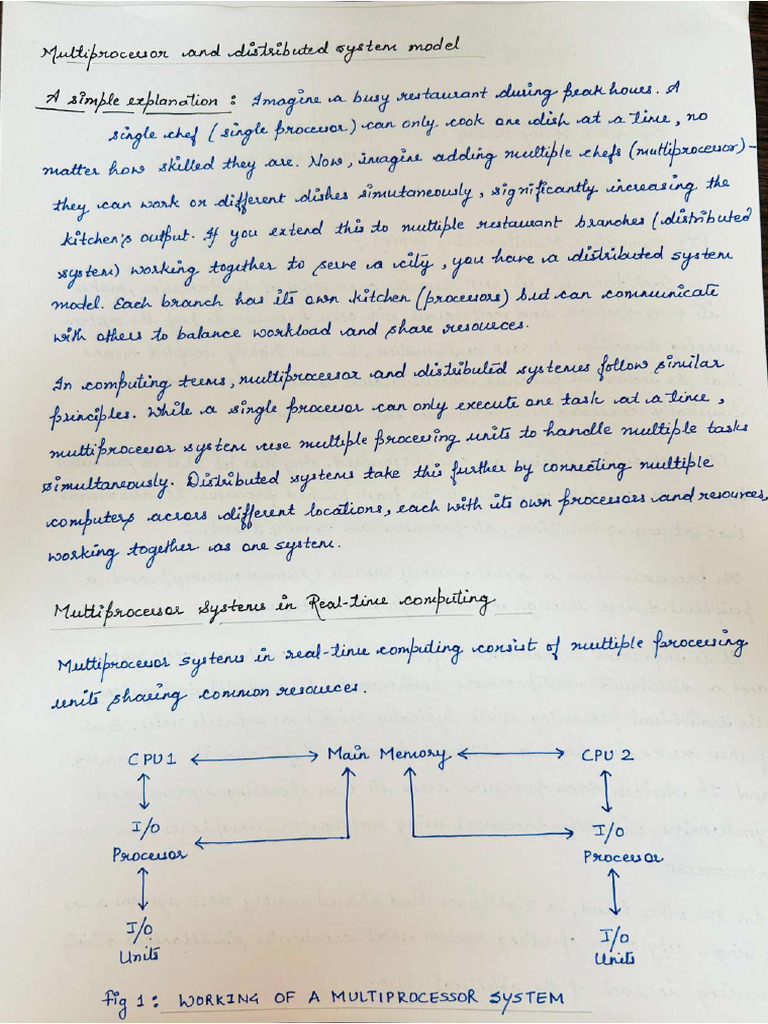 Multiprocessor and distributed system model
A simple explanation : Imagine a busy restaurant during peak hours. A
single chef (single processor) can only cook one dish at a time, no
matter how skilled they are. Now, imagine adding multiple chefs (multiprocessor) -
they can work on different dishes simutaneously, significantly increasing the
kitchen's output. If you extend this to multiple restaurant branches (distributed
system) working together to serve a city, you have a distributed system
model. Each branch has its own kitchen (processors) but can communicate
with others to balance workload and share resources.
In computing terms, multiprocessor and distributed systems follow similar
principles. While a single processor can only execute one task at a time,
multiprocessor system use multiple processing units to handle multiple tasks
simultaneously. Distributed systems take this further by connecting multiple
computers across different locations, each with its own processors and resources,
working together as one system.
Multiprocessor Systems in Real-time computing
Multiprocessor systems in real-time computing consist of multiple processing
units sharing common resources.
CPU 1 Main Memory CPU 2
I/O I/O
Processor Processor
I/O I/O
Units Units
Fig 1 : WORKING OF A MULTIPROCESSOR SYSTEM